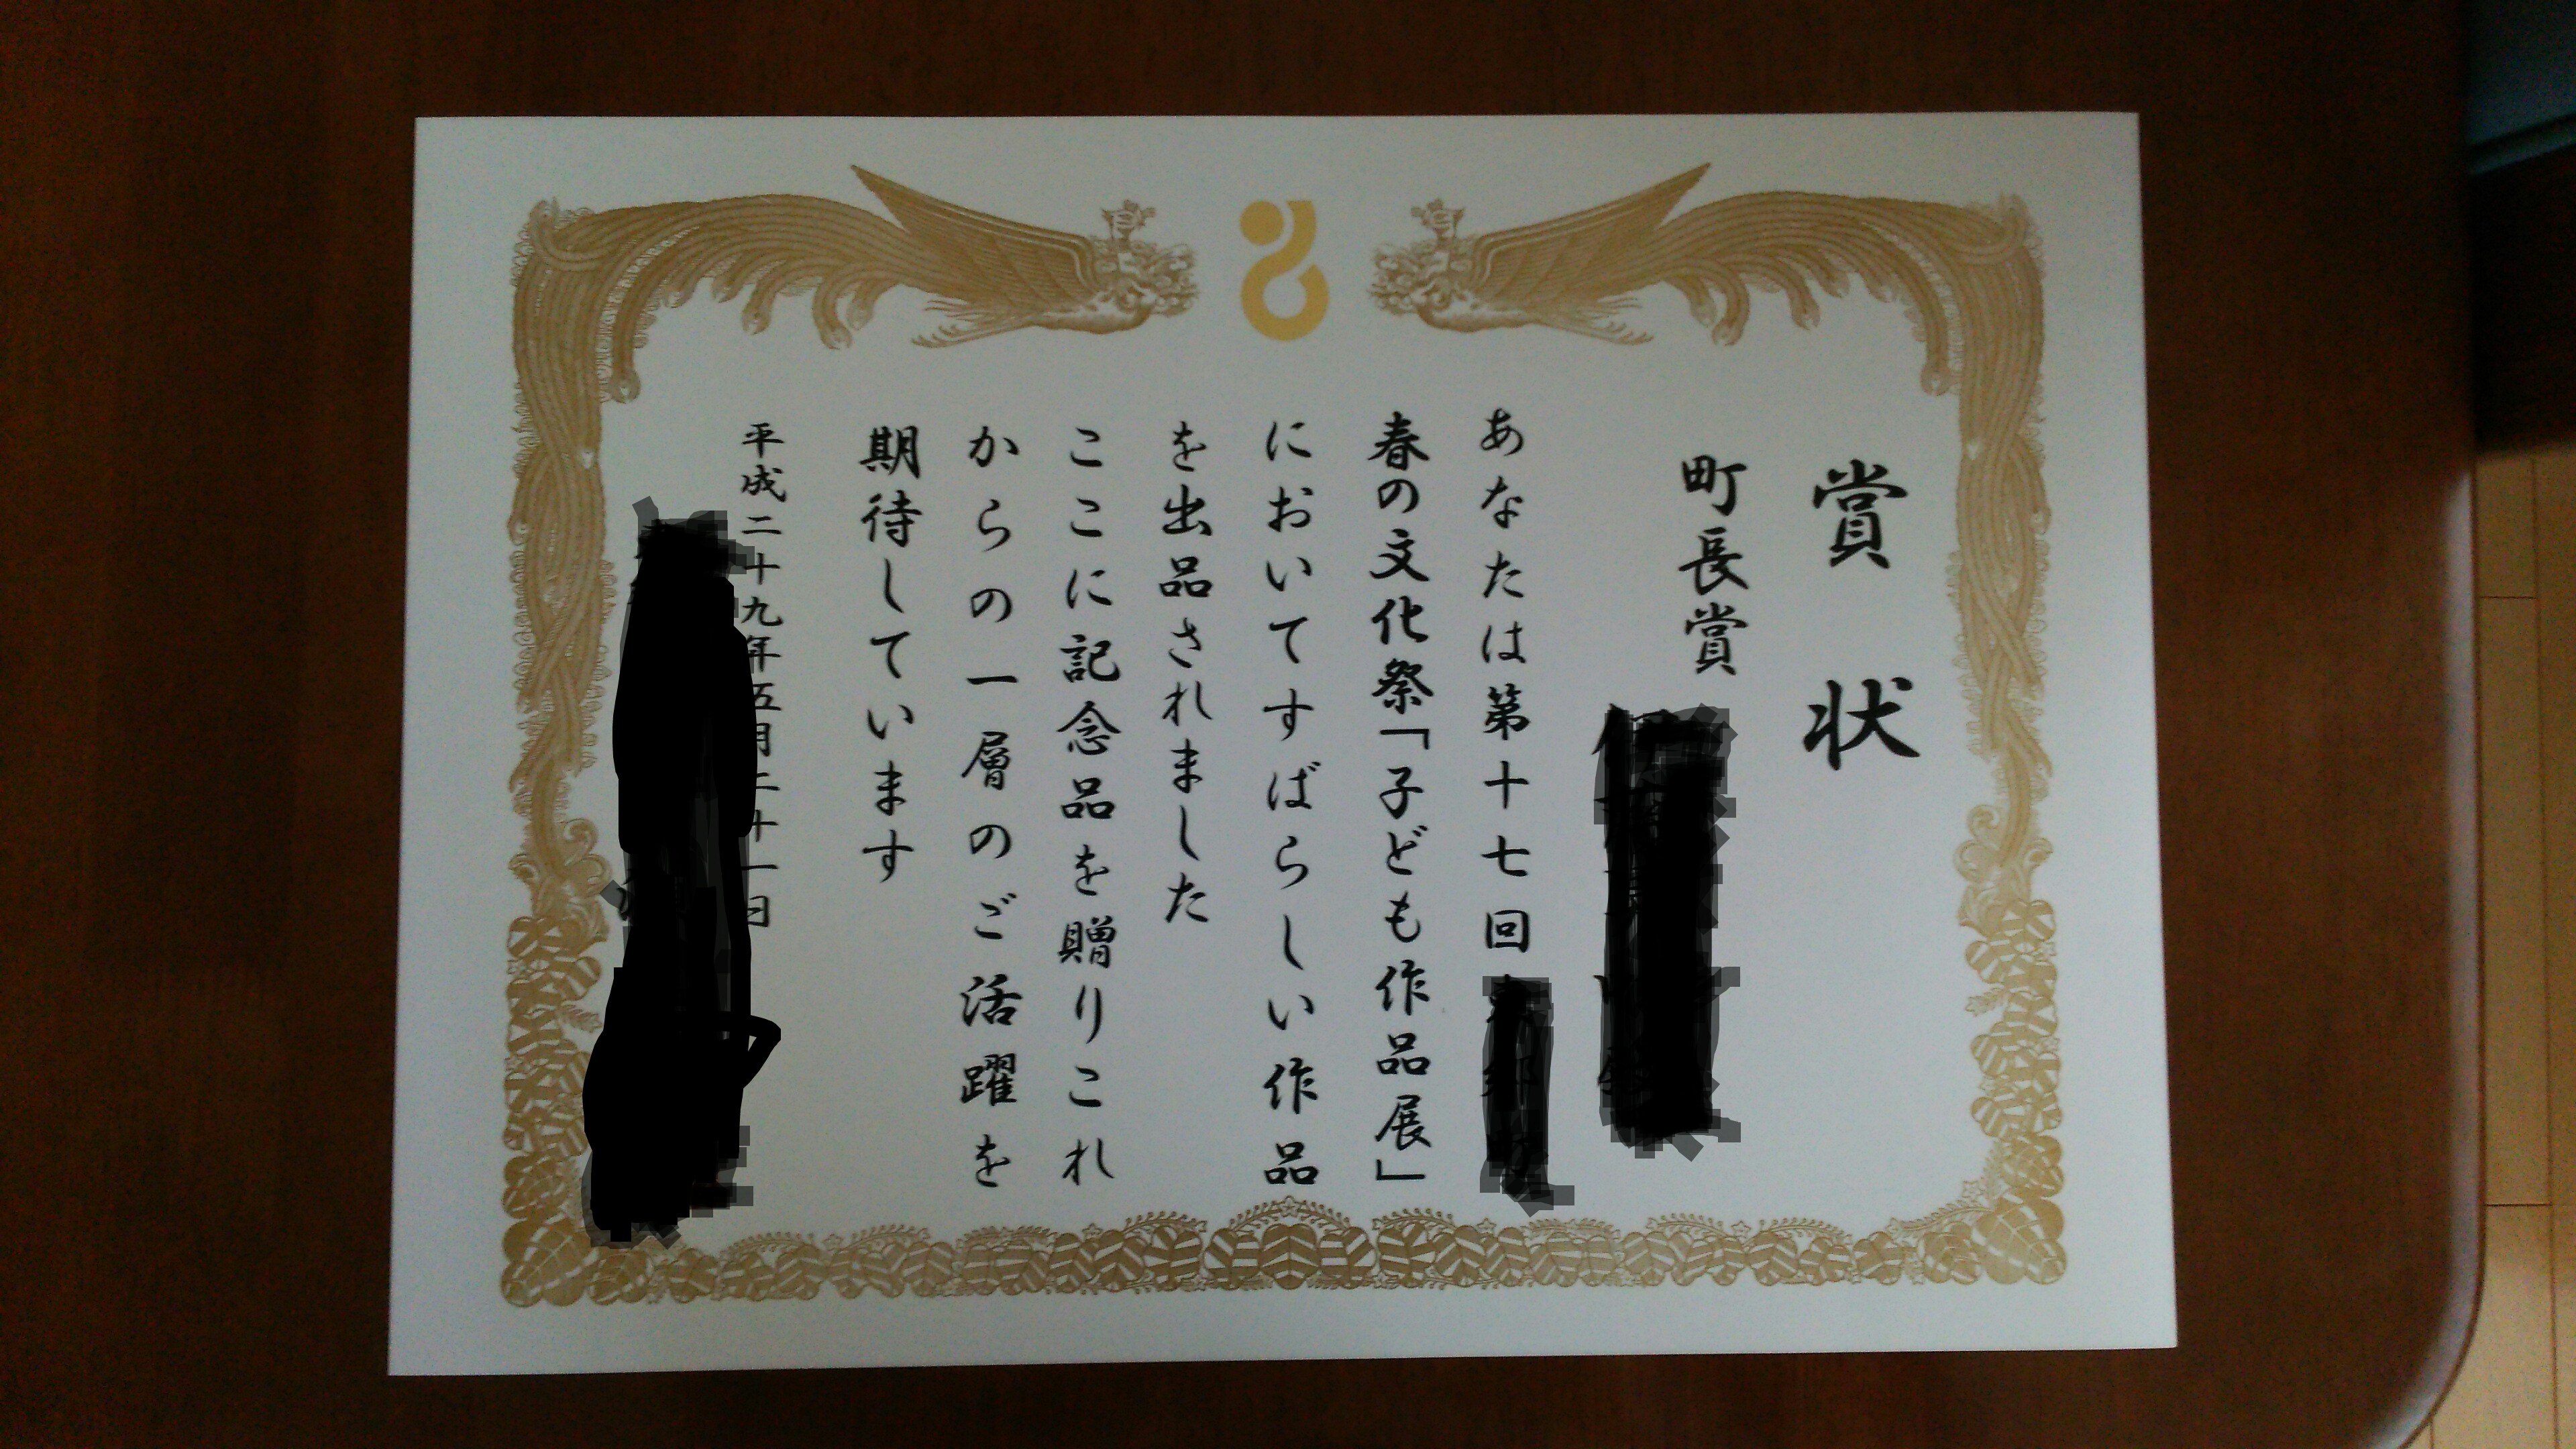 賞状
町長賞
あなたは第十七回
春の文化祭「子ども作品展」
においてすばらしい作品
を出品されました
ここに記念品を贈りこれ
からの一層のご活躍を
期待しています
平成二十九年五月二十一日